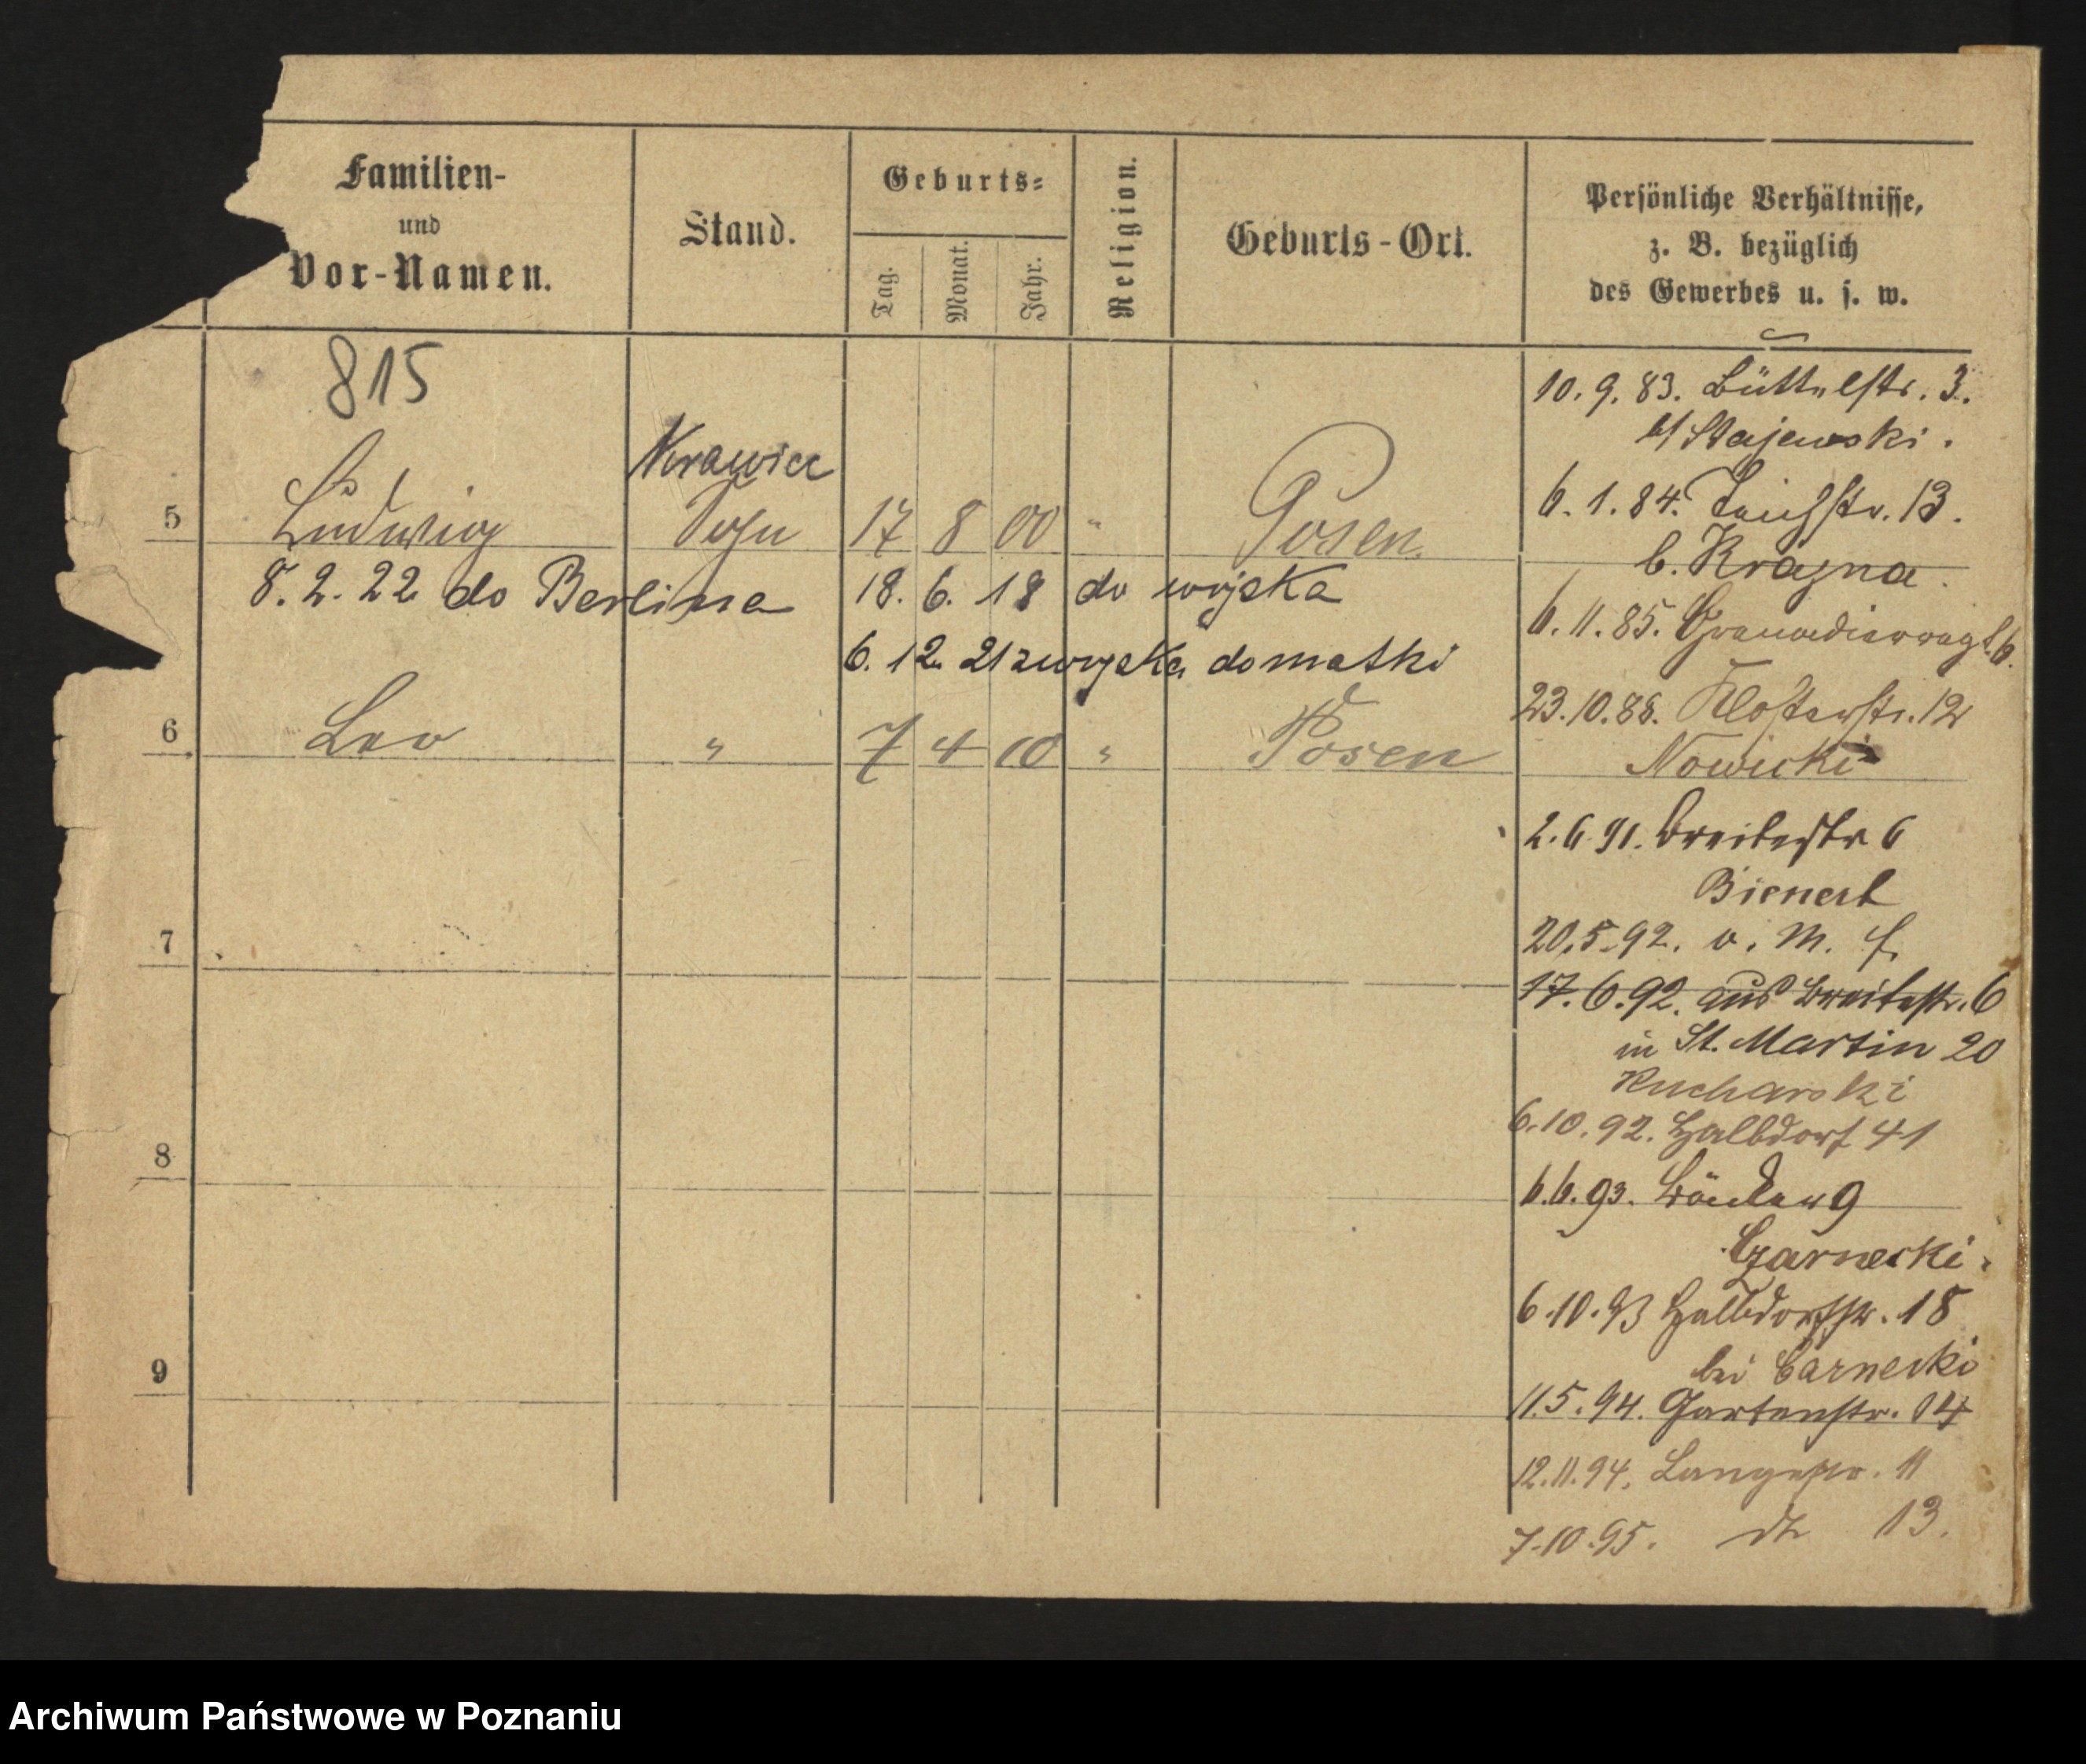 Familien-
und
Vor-Namen.
Stand.
Geburts-
Tag.
Monat.
Jahr.
Religion.
Geburts-Ort.
Persönliche Verhältnisse,
z. B. bezüglich
des Gewerbes u. s. w.
815
Krawiec
5 Ludwig Sohn 17 8 00 " Posen.
8. 2. 22 do Berlina
18. 6. 18 do wojska
6. 12. 21 z wojska do matki
6 Leo " 7 4 10 " Posen
7
8
9
10. 9. 83. Büttelstr. 3.
b/ Stajewski.
6. 1. 84. Teichstr. 13.
b. Krajna.
6. 11. 85. 6.
23. 10. 88. Klosterstr. 12
Nowicki
2. 6. 91. Breitestr 6
Bienert
20. 5. 92. v. M. f.
17. 6. 92. aus Breitestr. 6
in St. Martin 20
Kucharski
6. 10. 92. Halbdorf 41
6. 6. 93. 9
Czarnecki.
6. 10. 93 Halbdorfstr. 18
bei Carnecki
11. 5. 94. Gartenstr. 14
12. 11. 94. Langestr. 11
7. 10. 95. 13.
Archiwum Państwowe w Poznaniu